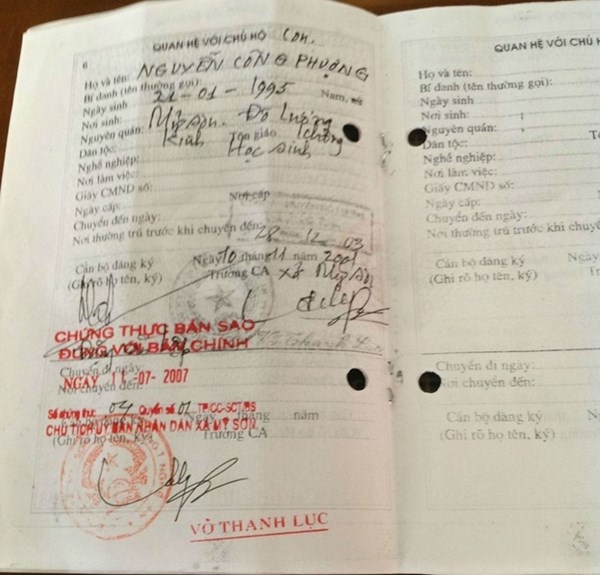 6
QUAN HỆ VỚI CHỦ HỘ Con.
Họ và tên: NGUYỄN CÔNG PHƯỢNG
Bí danh (tên thường gọi):
Ngày sinh 21-01-1995 Nam,
Nơi sinh:
Nguyên quán: Mỹ Sơn - Đô Lương
Dân tộc: Kinh Tôn giáo không
Nghề nghiệp: Học sinh
Nơi làm việc:
Giấy CMND số:
Ngày cấp: Nơi cấp
Chuyển đến ngày:
Nơi thường trú trước khi chuyển đến
28-12 03
Cán bộ đăng ký Ngày 10 tháng 11 năm 2001
(Ghi rõ họ tên, ký) Trưởng CA xã Mỹ Sơn
CHỨNG THỰC BẢN SAO
ĐÚNG VỚI BẢN CHÍNH
Chuyển đi ngày
NGÀY 11-07-2007
Nơi chuyển đến:
Số chứng thực 04 Quyển số 01 TP/CC-SCT/BS
Ngày tháng năm
CHỦ TỊCH ỦY BAN NHÂN DÂN XÃ MỸ SƠN
(Ghi rõ họ tên, ký) Trưởng CA
VÕ THANH LỤC
QUAN HỆ VỚI CHỦ H
Họ và tên:
Bí danh (tên thường gọi):
Ngày sinh
Nơi sinh:
Nguyên quán:
Dân tộc:
Nghề nghiệp:
Nơi làm việc:
Giấy CMND số:
Ngày cấp:
Chuyển đến ngày:
Nơi thường trú trước khi chuyển đến
Cán bộ đăng ký Ngày
(Ghi rõ họ tên, ký)
Chuyển đi ngày:
Nơi chuyển đến:
Cán bộ đăng ký Ngày
(Ghi rõ họ tên, ký)